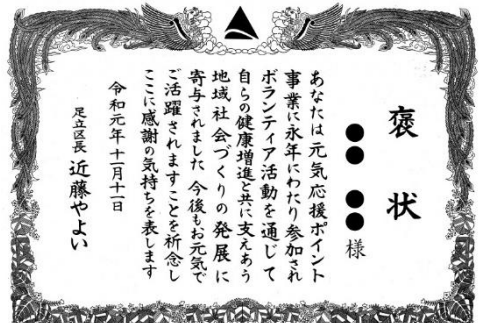 褒状
●● ●● 様
あなたは元気応援ポイント
事業に永年にわたり参加され
ボランティア活動を通じて
自らの健康増進と共に支えあう
地域社会づくりの発展に
寄与されました 今後もお元気で
ご活躍されますことを祈念し
ここに感謝の気持ちを表します
令和元年十一月十一日
足立区長 近藤やよい